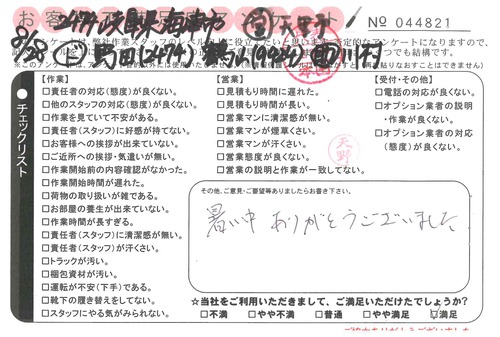 № 044821
チェックリスト
【作業】
□責任者の対応(態度)が良くない。
□他のスタッフの対応(態度)が良くない。
□作業を見ていて不安がある。
□責任者(スタッフ)に好感が持てない。
□お客様への挨拶が出来ていない。
□ご近所への挨拶・気遣いが無い。
□作業開始前の内容確認がなかった。
□作業開始時間が遅れた。
□荷物の取り扱いが雑である。
□お部屋の養生が出来ていない。
□作業時間が長すぎる。
□責任者(スタッフ)に清潔感が無い。
□責任者(スタッフ)が汗くさい。
□トラックが汚い。
□梱包資材が汚い。
□運転が不安(下手)である。
□靴下の履き替えをしてない。
□スタッフにやる気がみられない。
【営業】
□見積もり時間に遅れた。
□見積もり時間が長い。
□営業マンに清潔感が無い。
□営業マンが煙草くさい。
□営業マンが汗くさい。
□営業態度が良くない。
□営業の説明と作業が一致してない。
【受付・その他】
□電話の対応が良くない。
□オプション業者の説明
・作業が良くない。
□オプション業者の対応
(態度)が良くない。
天野
その他、ご意見・ご要望等ありましたらお書き下さい。
暑い中 ありがとうございました
☆当社をご利用いただきまして、ご満足いただけたでしょうか?
□不満 □やや不満 □普通 □やや満足 □満足